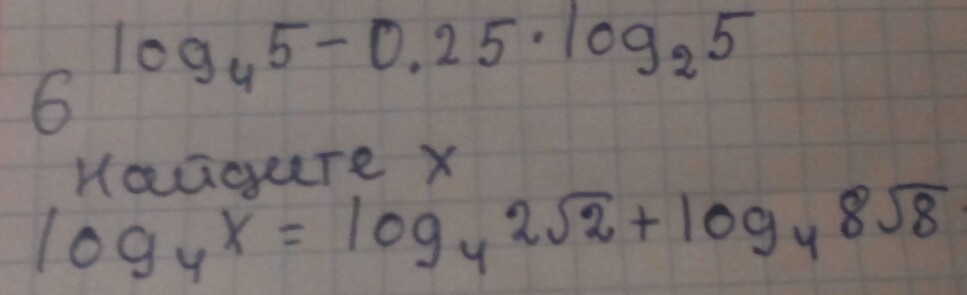 log₄5-0.25·log₂5
6
Найдите x
log₄x=log₄2√2+log₄8√8